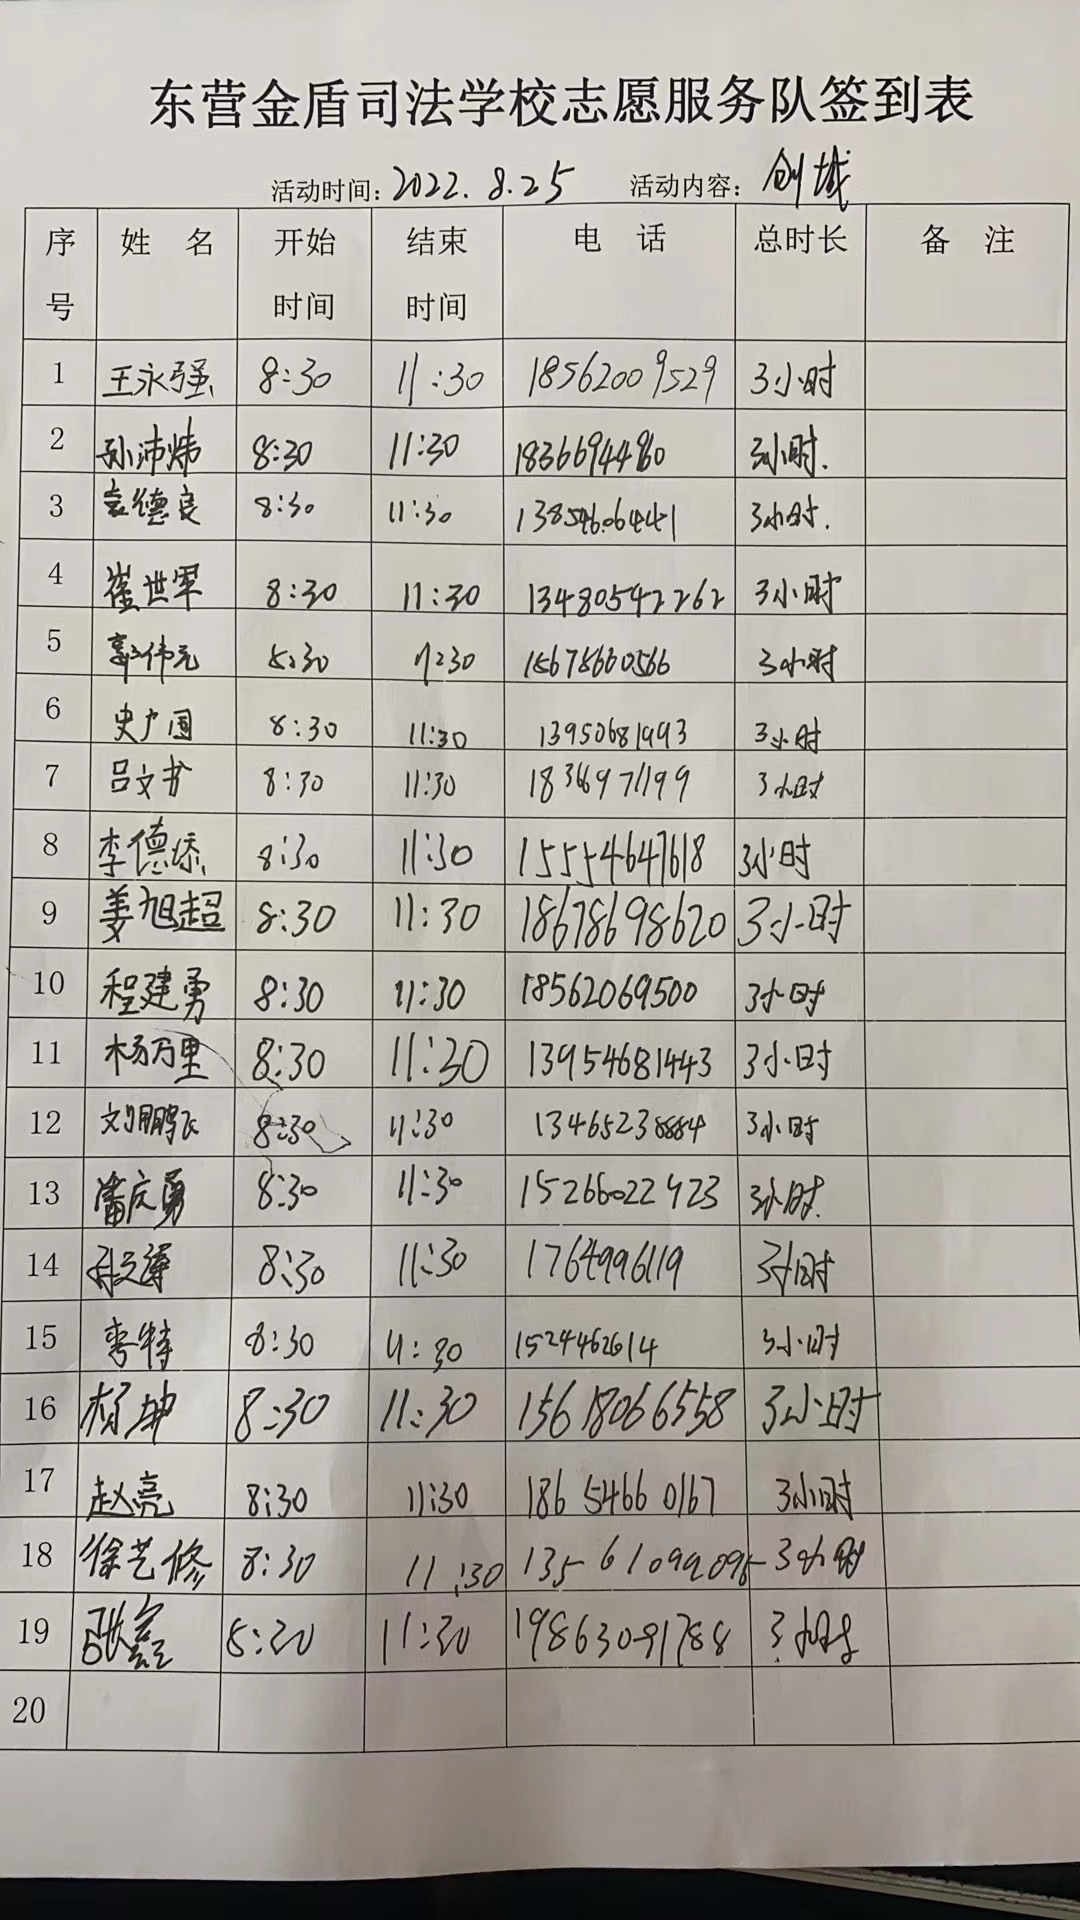 东营金盾司法学校志愿服务队签到表
活动时间: 2022.8.25 活动内容: 创城
序号 姓 名 开始时间 结束时间 电 话 总时长 备 注
1 王永强 8:30 11:30 18562009529 3小时
2 孙沛炜 8:30 11:30 18366944960 3小时.
3 袁德良 8:30 11:30 13854606441 3小时.
4 崔世军 8:30 11:30 13480542262 3小时
5 郭伟元 8:30 11:30 15675660566 3小时
6 史广国 8:30 11:30 13950681993 3小时
7 吕文书 8:30 11:30 18366971199 3小时
8 李德添 8:30 11:30 15554647618 3小时
9 姜旭超 8:30 11:30 18678698620 3小时
10 程建勇 8:30 11:30 18562069500 3小时
11 杨万里 8:30 11:30 13954681443 3小时
12 刘鹏飞 8:30 11:30 13465238884 3小时
13 潘庆勇 8:30 11:30 15266022923 3小时.
14 孙文涛 8:30 11:30 1764996119 3小时
15 李特 8:30 11:30 1524462614 3小时
16 杨坤 8:30 11:30 15618066558 3小时
17 赵亮 8:30 11:30 18654660167 3小时
18 徐艺修 8:30 11:30 13561099095 3小时
19 张鑫 8:30 11:30 19863091788 3小时
20